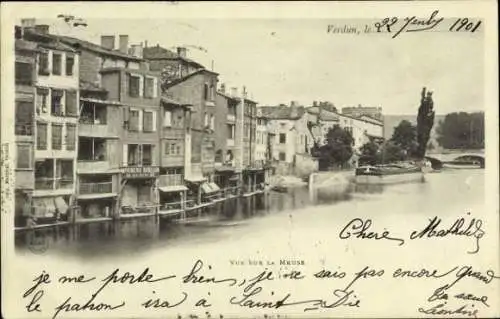 Verdun, le 22 Janv 1901
Vue sur la Meuse
Chère Mathilde
je me porte bien, je sais pas encore quand
le patron ira à Saint Dié
Léontine